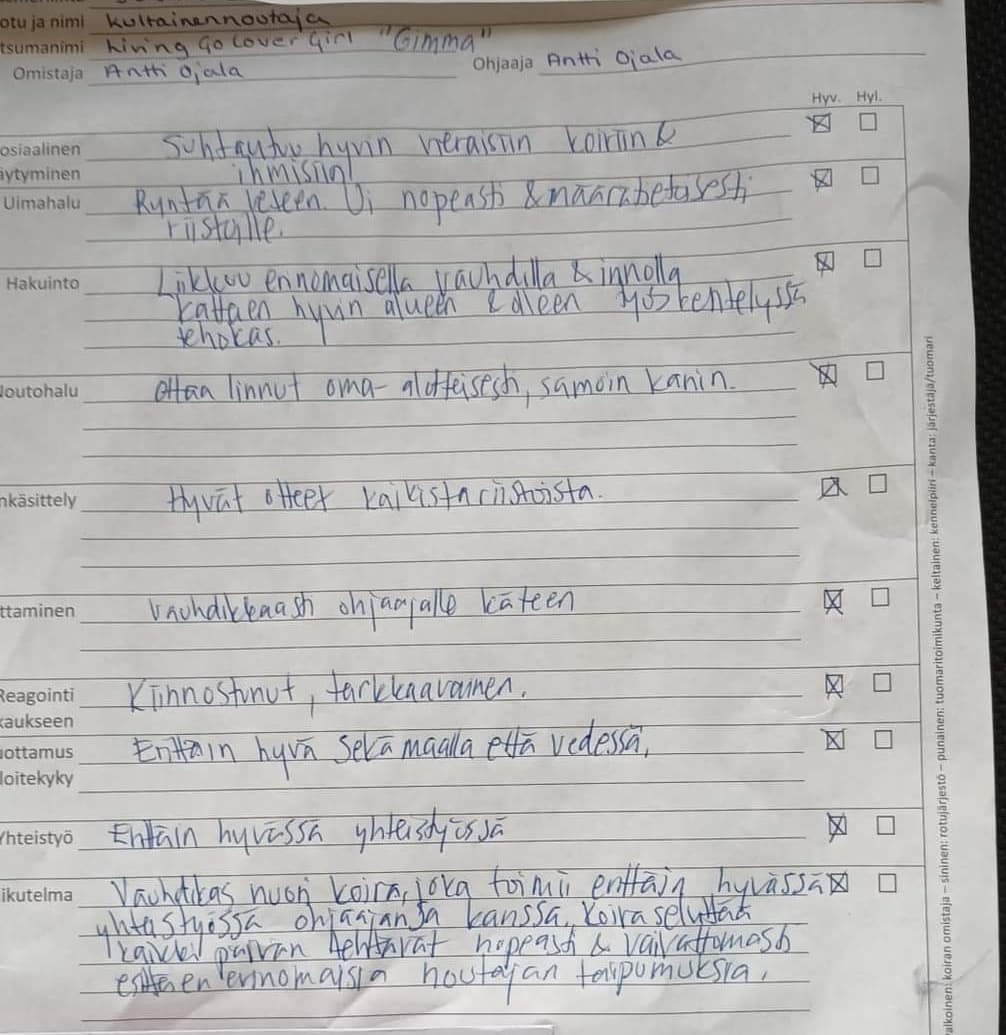 otu ja nimi kultainennoutaja
tsumanimi Living Go Cover Girl "Gimma"
Omistaja Antti Ojala Ohjaaja Antti Ojala
Hyv. Hyl.
osiaalinen Suhtautuu hyvin vieraisiin koiriin &
äytyminen ihmisiin!
Uimahalu Ryntää veteen. Ui nopeasti & määrätietoisesti
riistalle.
Hakuinto Liikkuu erinomaisella vauhdilla & innolla
kattaen hyvin alueen & olleen työskentelyssä
tehokas.
Noutohalu Ottaa linnut oma-aloitteisesti, samoin kanin.
nkäsittely Hyvät otteet kaikista riistoista.
ttaminen Vauhdikkaasti ohjaajalle käteen
Reagointi Kiinnostunut, tarkkaavainen.
kaukseen
uottamus Erittäin hyvä sekä maalla että vedessä.
loitekyky
Yhteistyö Erittäin hyvässä yhteistyössä
ikutelma Vauhdikas nuori koira, joka toimii erittäin hyvässä
yhteistyössä ohjaajansa kanssa. Koira selvittää
kaikki päivän tehtävät nopeasti & vaivattomasti
esittäen erinomaisia noutajan taipumuksia.
valkoinen: koiran omistaja – sininen: rotujärjestö – punainen: tuomaritoimikunta – keltainen: kennelpiiri – kanta: järjestäjä/tuomari